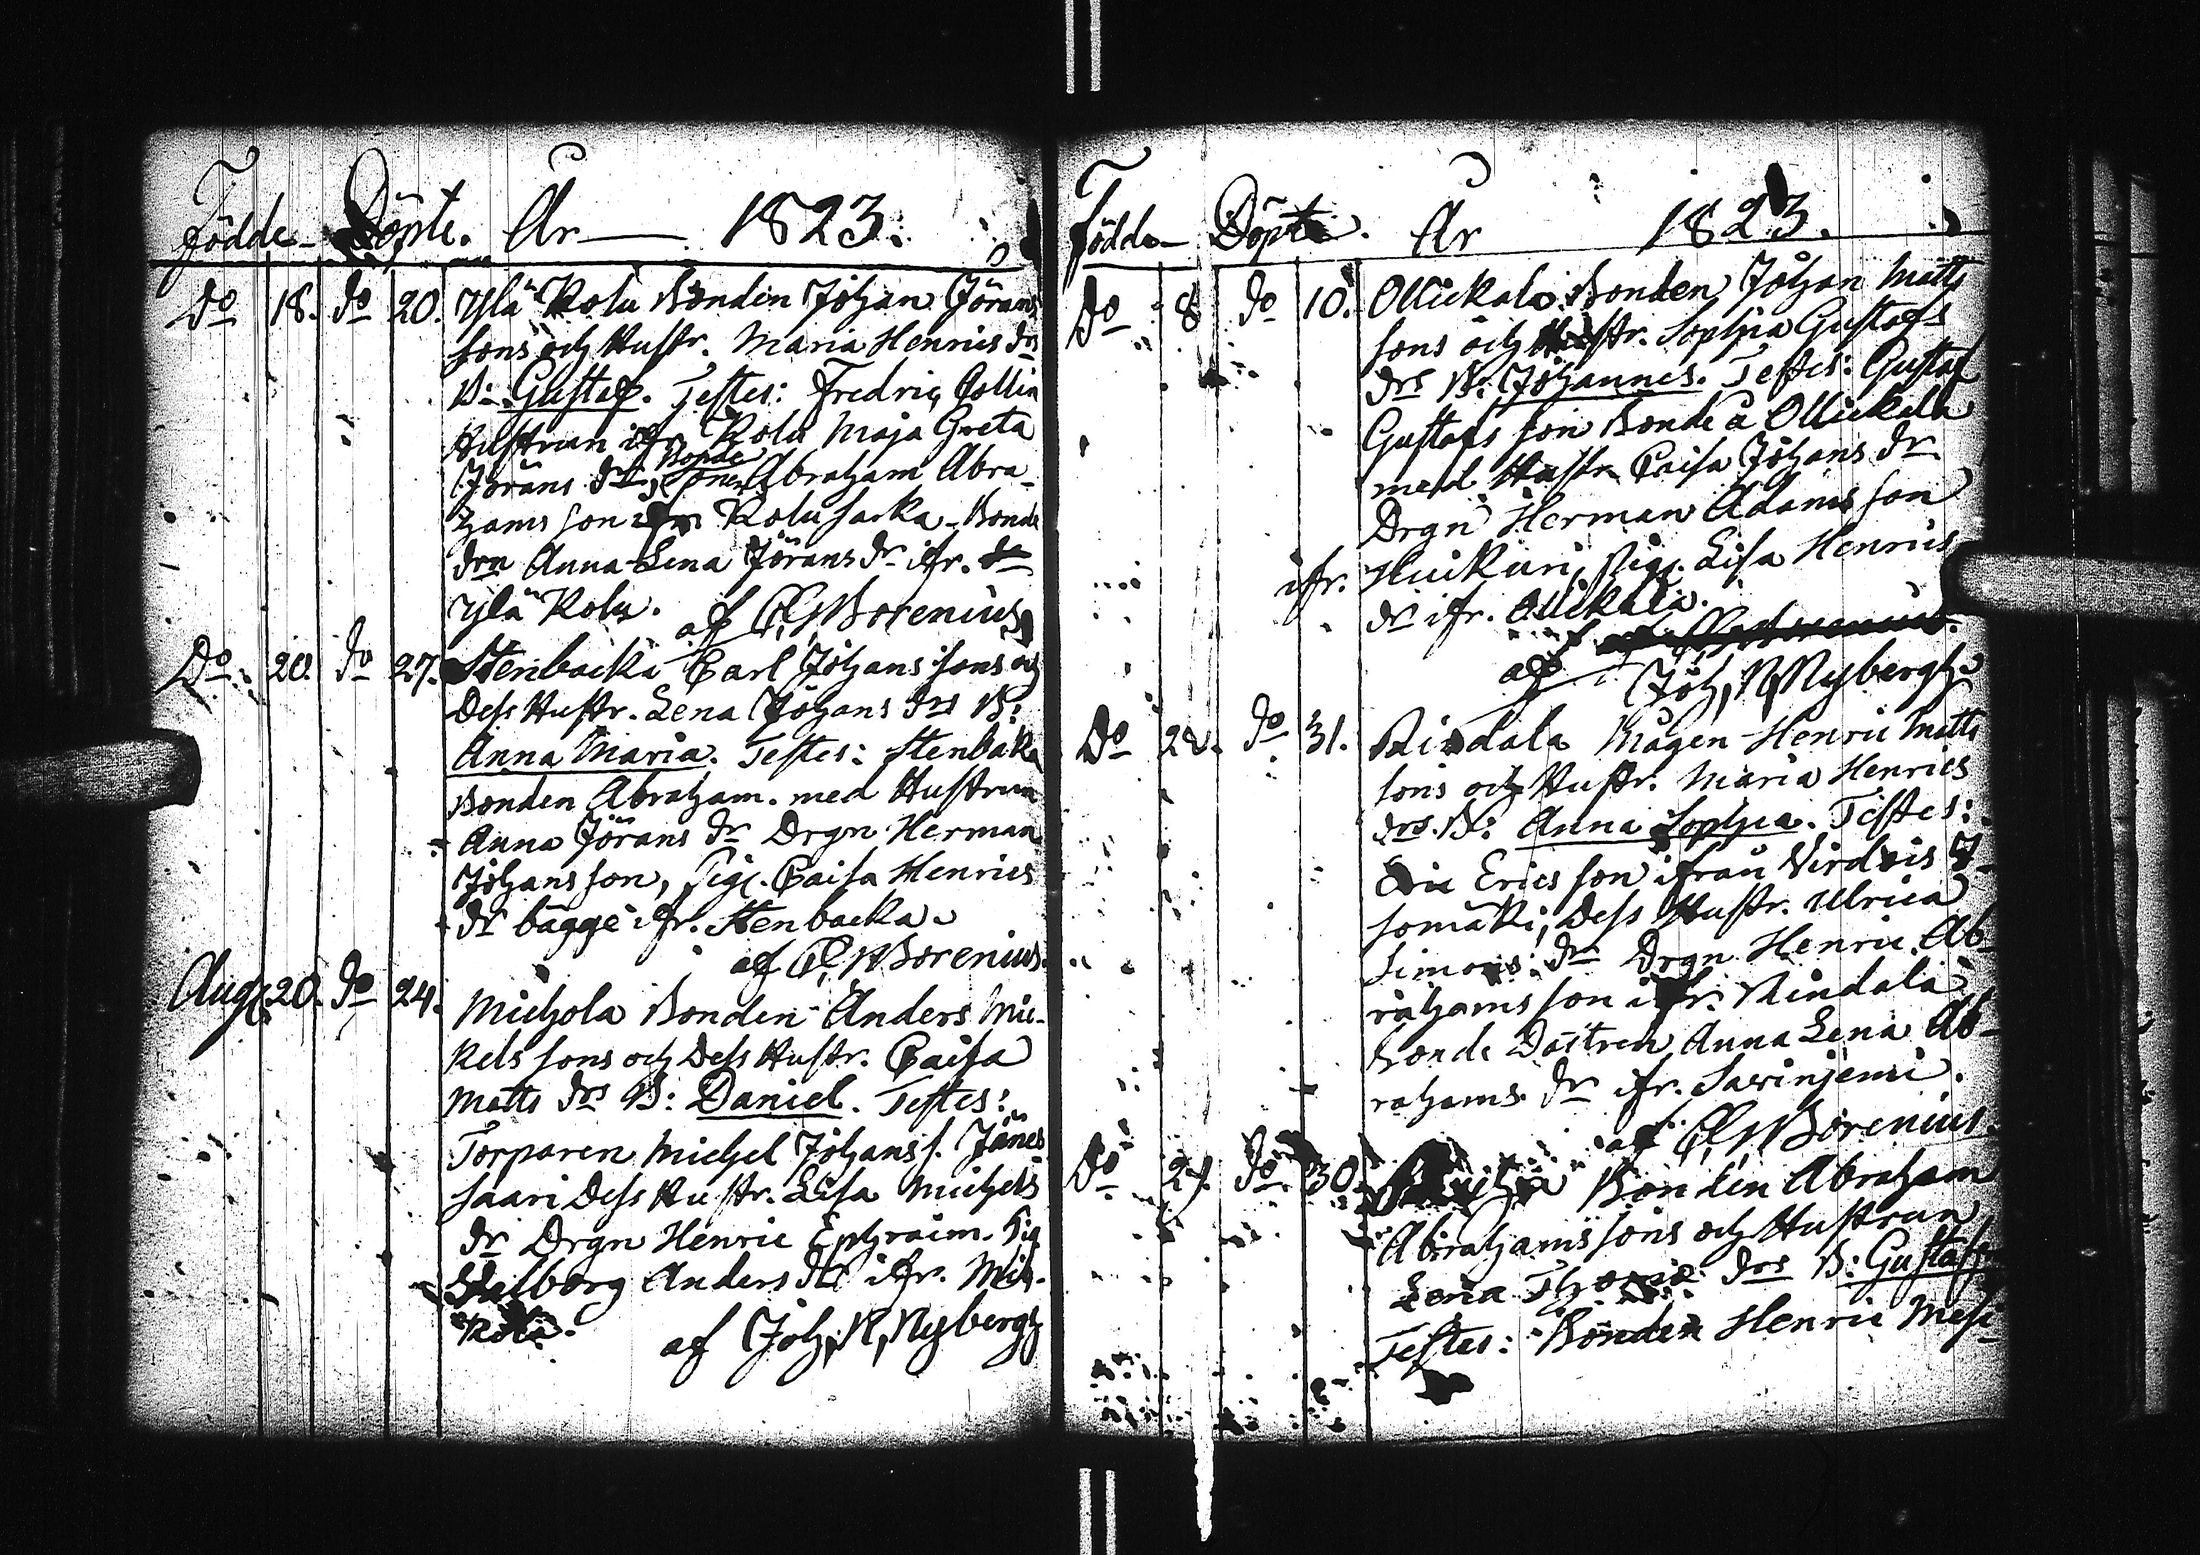 Födde Döpte. År 1823.
Do 18. do 20. Ylä Kolu Bonden Johan Jörans
sons och Hustr. Maria Henrics drs
B: Gustaf. Testes: Fredric Collin
Hustrun ifr Kolu Maja Greta
Jörans dr, Bonde
Sonen Abraham Abra-
hams son ifr Kolusarka - Bonde
drn Anna Lena Jörans dr ifr.
Ylä Kolu. af C G W Borenius
Do 20. do 27. Stenbacka Carl Johans sons och
Dess Hustr. Lena Johans drs B:
Anna Maria. Testes: Stenbacka
Bonden Abraham. med Hustrun
Anna Jörans dr Drgn Herman
Johans son, Pig. Caisa Henrics
dr bägge ifr. Stenbacka.
af C G W Borenius.
Aug. 20. do 24. Michola Bonden Anders Mic-
kels sons och Dess Hustr. Caisa
Matts drs B: Daniel. Testes:
Torparen Michel Johans s. Jänes
saari Dess Hustr. Lisa Michels
dr Drgn Henric Ephraim. Pig
Walborg Anders dr ifr. Mic-
kola. af Joh, N, Nybergh
Födde Döpte. År 1823.
Do 8 do 10. Ollickala Bonden Johan Matts
sons och Hustr. Sophia Gustafs
drs B: Johannes. Testes: Gustaf
Gustafs son Bonde å Ollickala
med Hustr Caisa Johans dr
Drgn Herman Adams son
ifr. Huikuri, Pig. Lisa Henrics
dr ifr. Ollickala.
af Joh, N, Nybergh.
Do 28. do 31. Rindala Mågen Henric Matts
sons och Hustr. Maria Henrics
drs. B: Anna Sophia. Testes:
Eric Erics son ifrån Virdois I-
somäki, Dess Hustr. Ulrica
Simons dr Drgn Henric Ab-
rahams son ifr. Rindala
bonde Dottren Anna Lena Ab-
rahams dr ifr. Savinjemi.
af C G W Borenius.
Do 27. do 30. Bonden Abraham
Abrahams sons och Hustrun
Lena drs B: Gustaf
Testes: Bonden Henric Mefi-